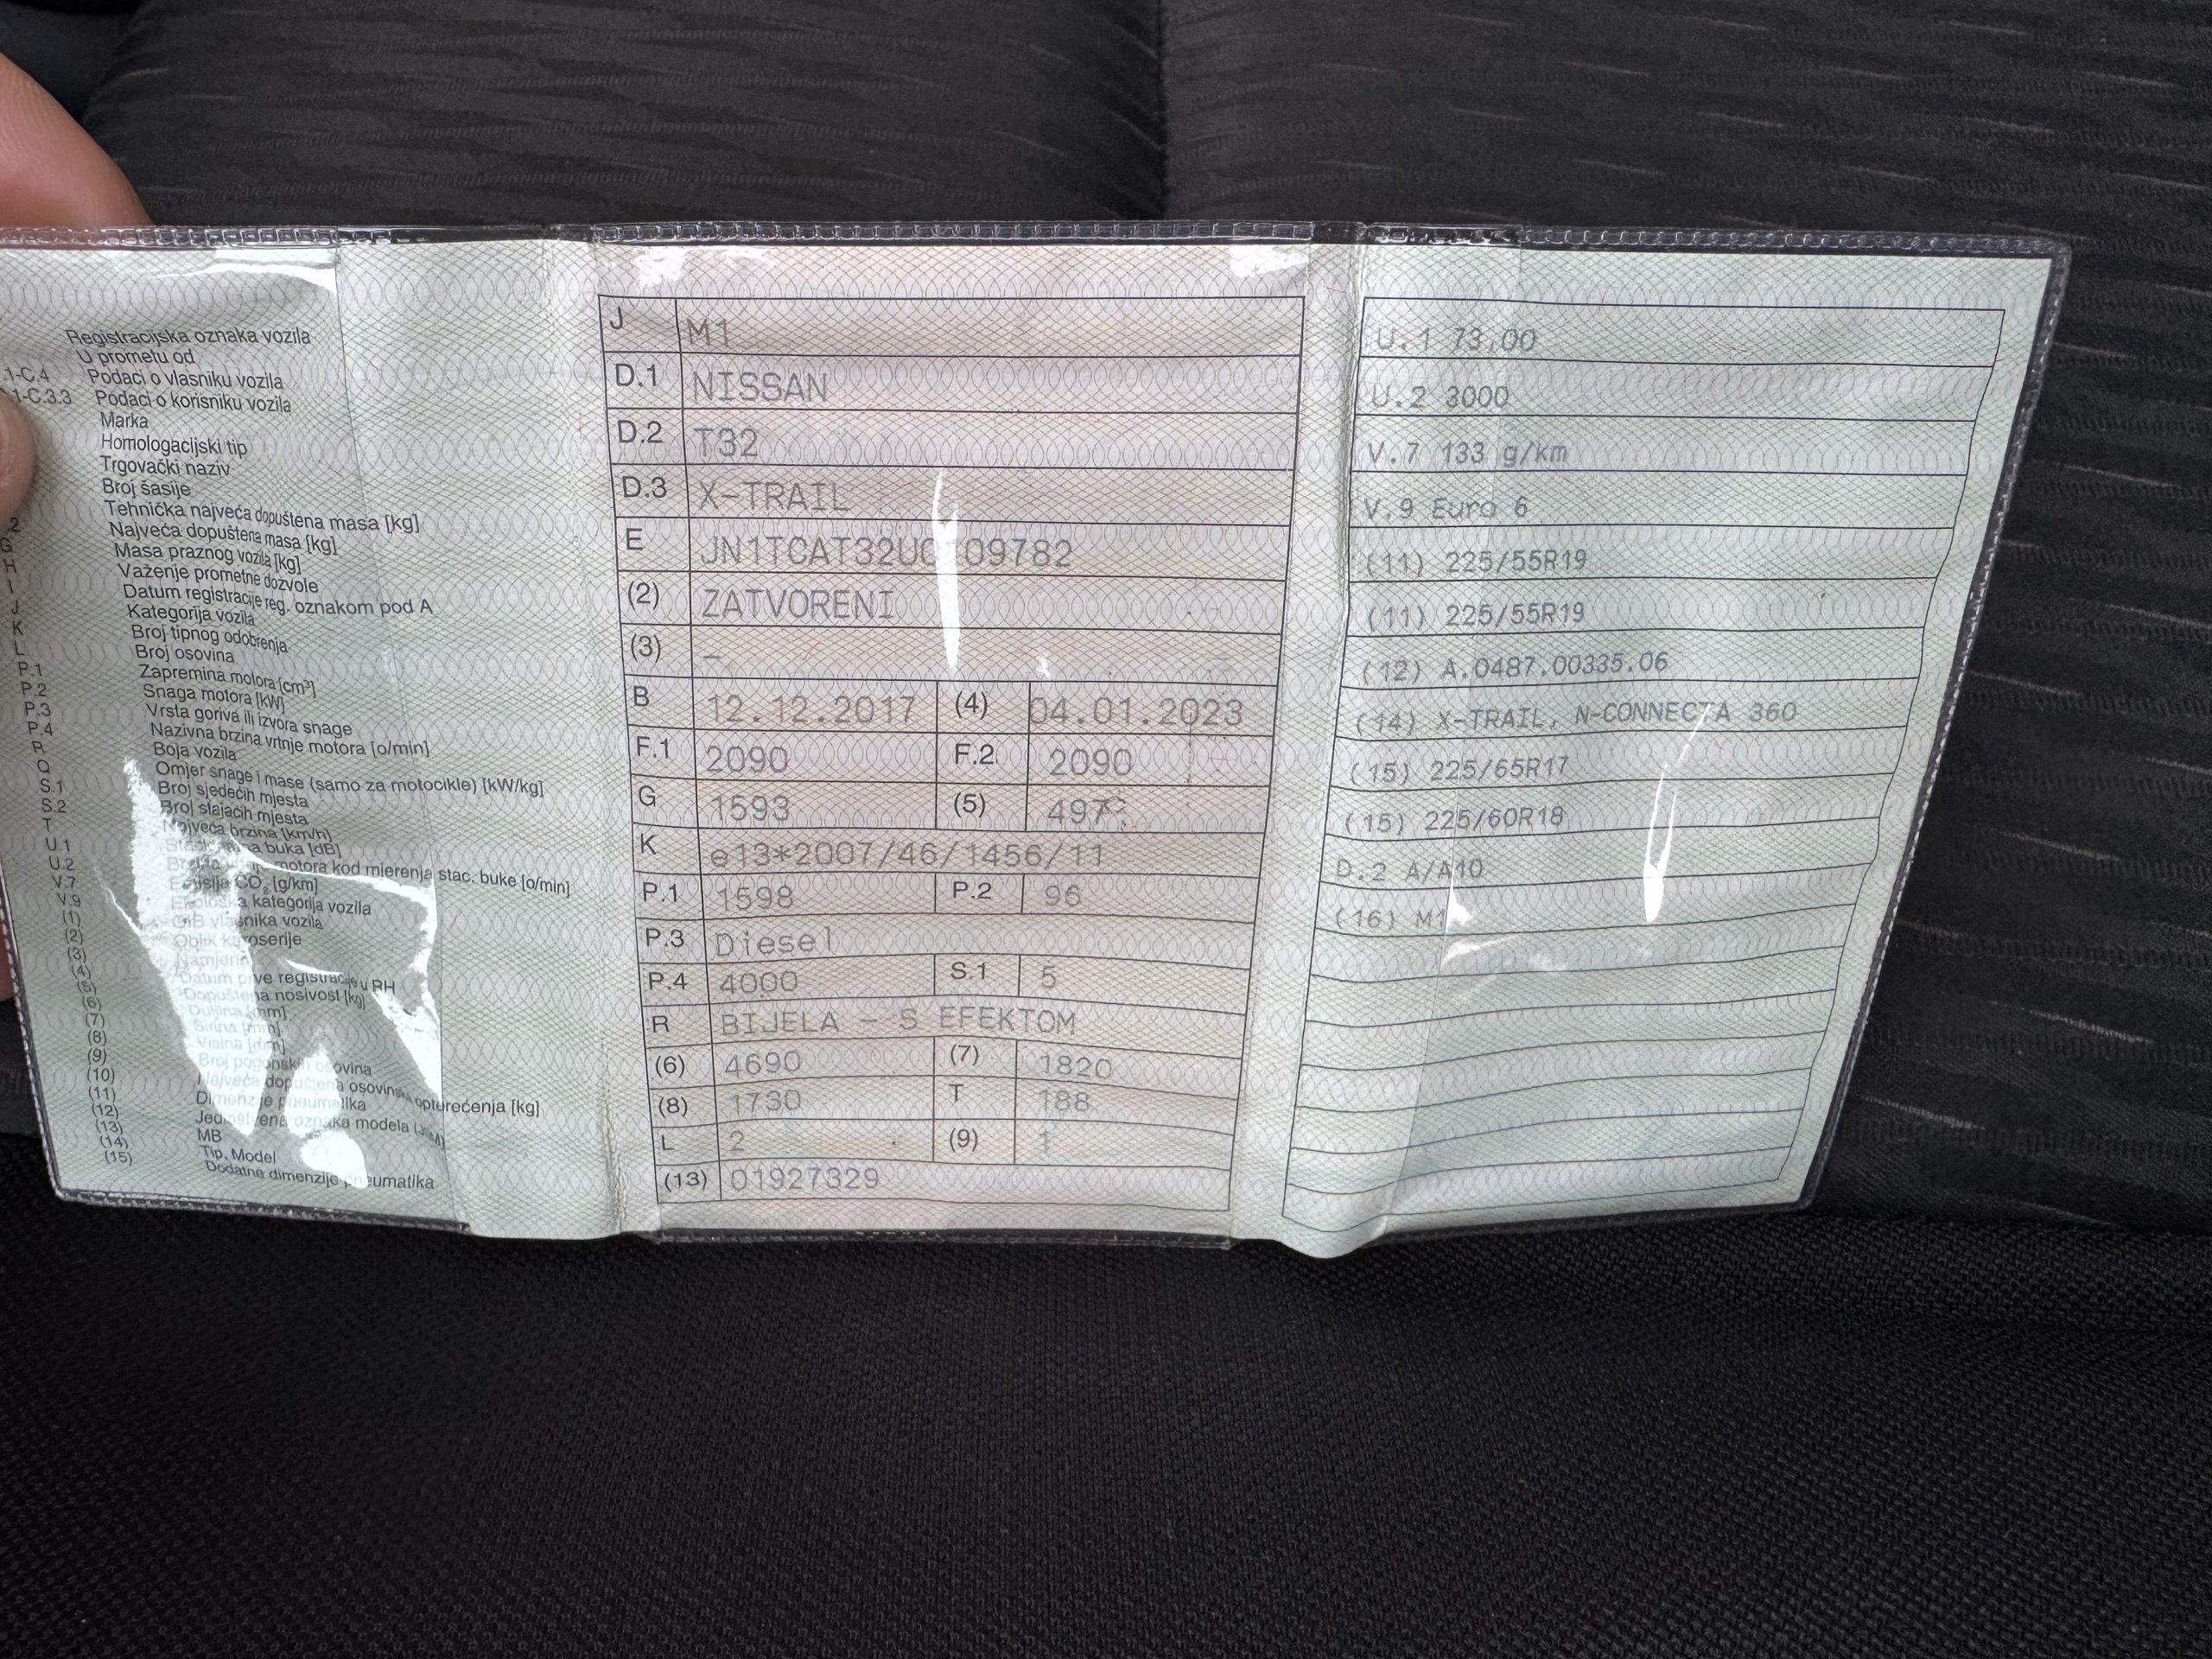 Registracijska oznaka vozila
U prometu od
.1-C.4 Podaci o vlasniku vozila
1-C.3.3 Podaci o korisniku vozila
Marka
Homologacijski tip
Trgovački naziv
Broj šasije
Tehnička najveća dopuštena masa [kg]
.2 Najveća dopuštena masa [kg]
G Masa praznog vozila [kg]
H Važenje prometne dozvole
I Datum registracije reg. oznakom pod A
J Kategorija vozila
K Broj tipnog odobrenja
L Broj osovina
P.1 Zapremina motora [cm³]
P.2 Snaga motora [kW]
P.3 Vrsta goriva ili izvora snage
P.4 Nazivna brzina vrtnje motora [o/min]
R Boja vozila
Q Omjer snage i mase (samo za motocikle) [kW/kg]
S.1 Broj sjedećih mjesta
S.2 Broj stajaćih mjesta
T Najveća brzina [km/h]
U.1 buka [dB]
U.2 motora kod mjerenja stac. buke [o/min]
V.7 Emisija CO₂ [g/km]
V.9 Ekološka kategorija vozila
(1) OIB vlasnika vozila
(2) Oblik karoserije
(3) Namjena
(4) Datum prve registracije u RH
(5) Dopuštena nosivost [kg]
(6) Duljina [mm]
(7) Širina [mm]
(8) Visina [mm]
(9) Broj pogonskih osovina
(10) Najveća dopuštena osovinska opterećenja [kg]
(11) Dimenzije pneumatika
(12) Jedinstvena oznaka modela
(13) MB
(14) Tip, Model
(15) Dodatne dimenzije pneumatika
J M1
D.1 NISSAN
D.2 T32
D.3 X-TRAIL
E JN1TCAT32U 09782
(2) ZATVORENI
(3) –
B 12.12.2017 (4) 04.01.2023
F.1 2090 F.2 2090
G 1593 (5) 497
K e13*2007/46/1456/11
P.1 1598 P.2 96
P.3 Diesel
P.4 4000 S.1 5
R BIJELA – S EFEKTOM
(6) 4690 (7) 1820
(8) 1730 T 188
L 2 (9) 1
(13) 01927329
U.1 73,00
U.2 3000
V.7 133 g/km
V.9 Euro 6
(11) 225/55R19
(11) 225/55R19
(12) A.0487.00335.06
(14) X-TRAIL, N-CONNECTA 360
(15) 225/65R17
(15) 225/60R18
D.2 A/A10
(16) M1